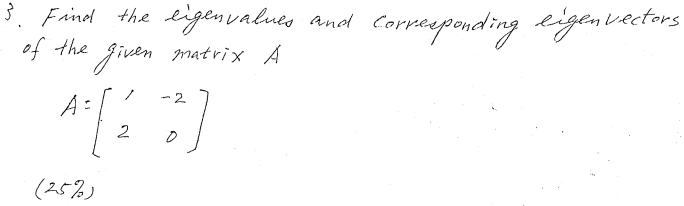 3. Find the eigenvalues and corresponding eigenvectors
of the given matrix A
A = [ 1 -2
2 0 ]
(25%)